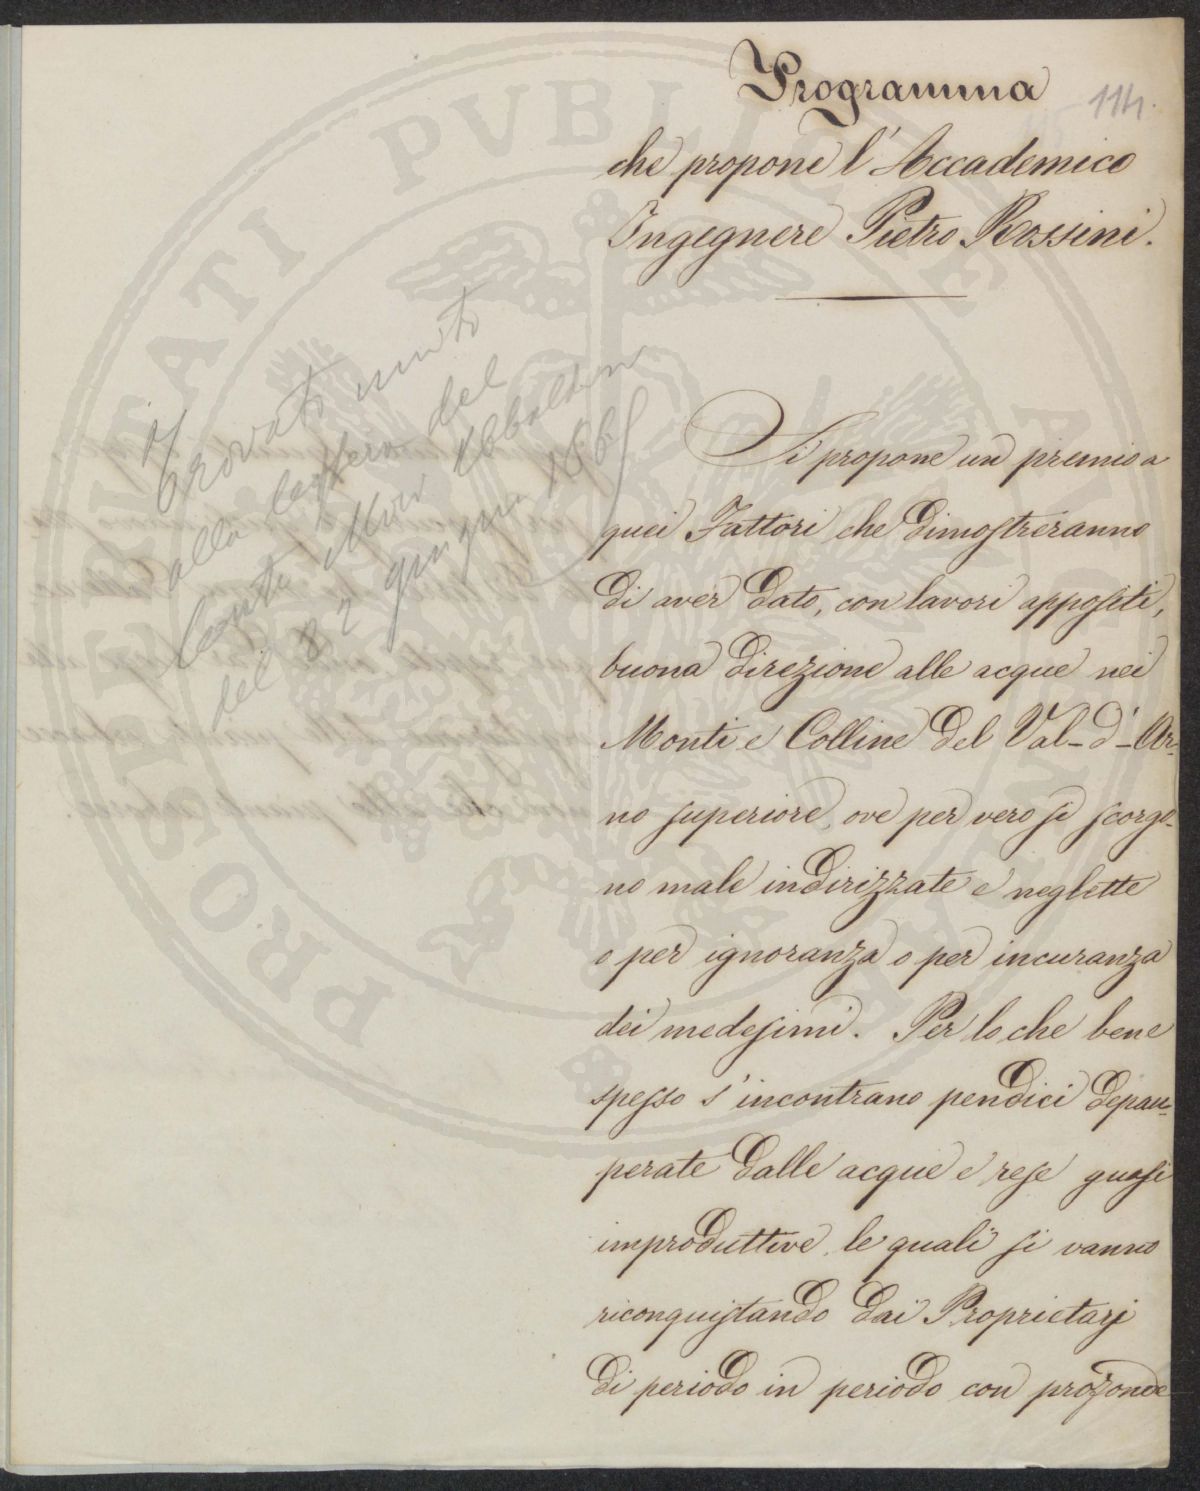 Programma
114.
che propone l'Accademico
Ingegnere Pietro Rossini.
Trovato unito
alla lettera del
Conte Ubaldino
del 2 giugno 1865
Si propone un premio a
quei Fattori che dimostreranno
di aver dato, con lavori appositi,
buona direzione alle acque nei
Monti e Colline del Val-d'-Ar-
no superiore, ove per vero si scorgo-
no male indirizzate e neglette
o per ignoranza o per incuranza
dei medesimi. Per lo che bene
spesso s'incontrano pendici depau-
perate dalle acque e rese quasi
improduttive, le quali si vanno
riconquistando dai Proprietarj
di periodo in periodo con profonde
PROSPERITATI PVBLICAE AVGENDAE